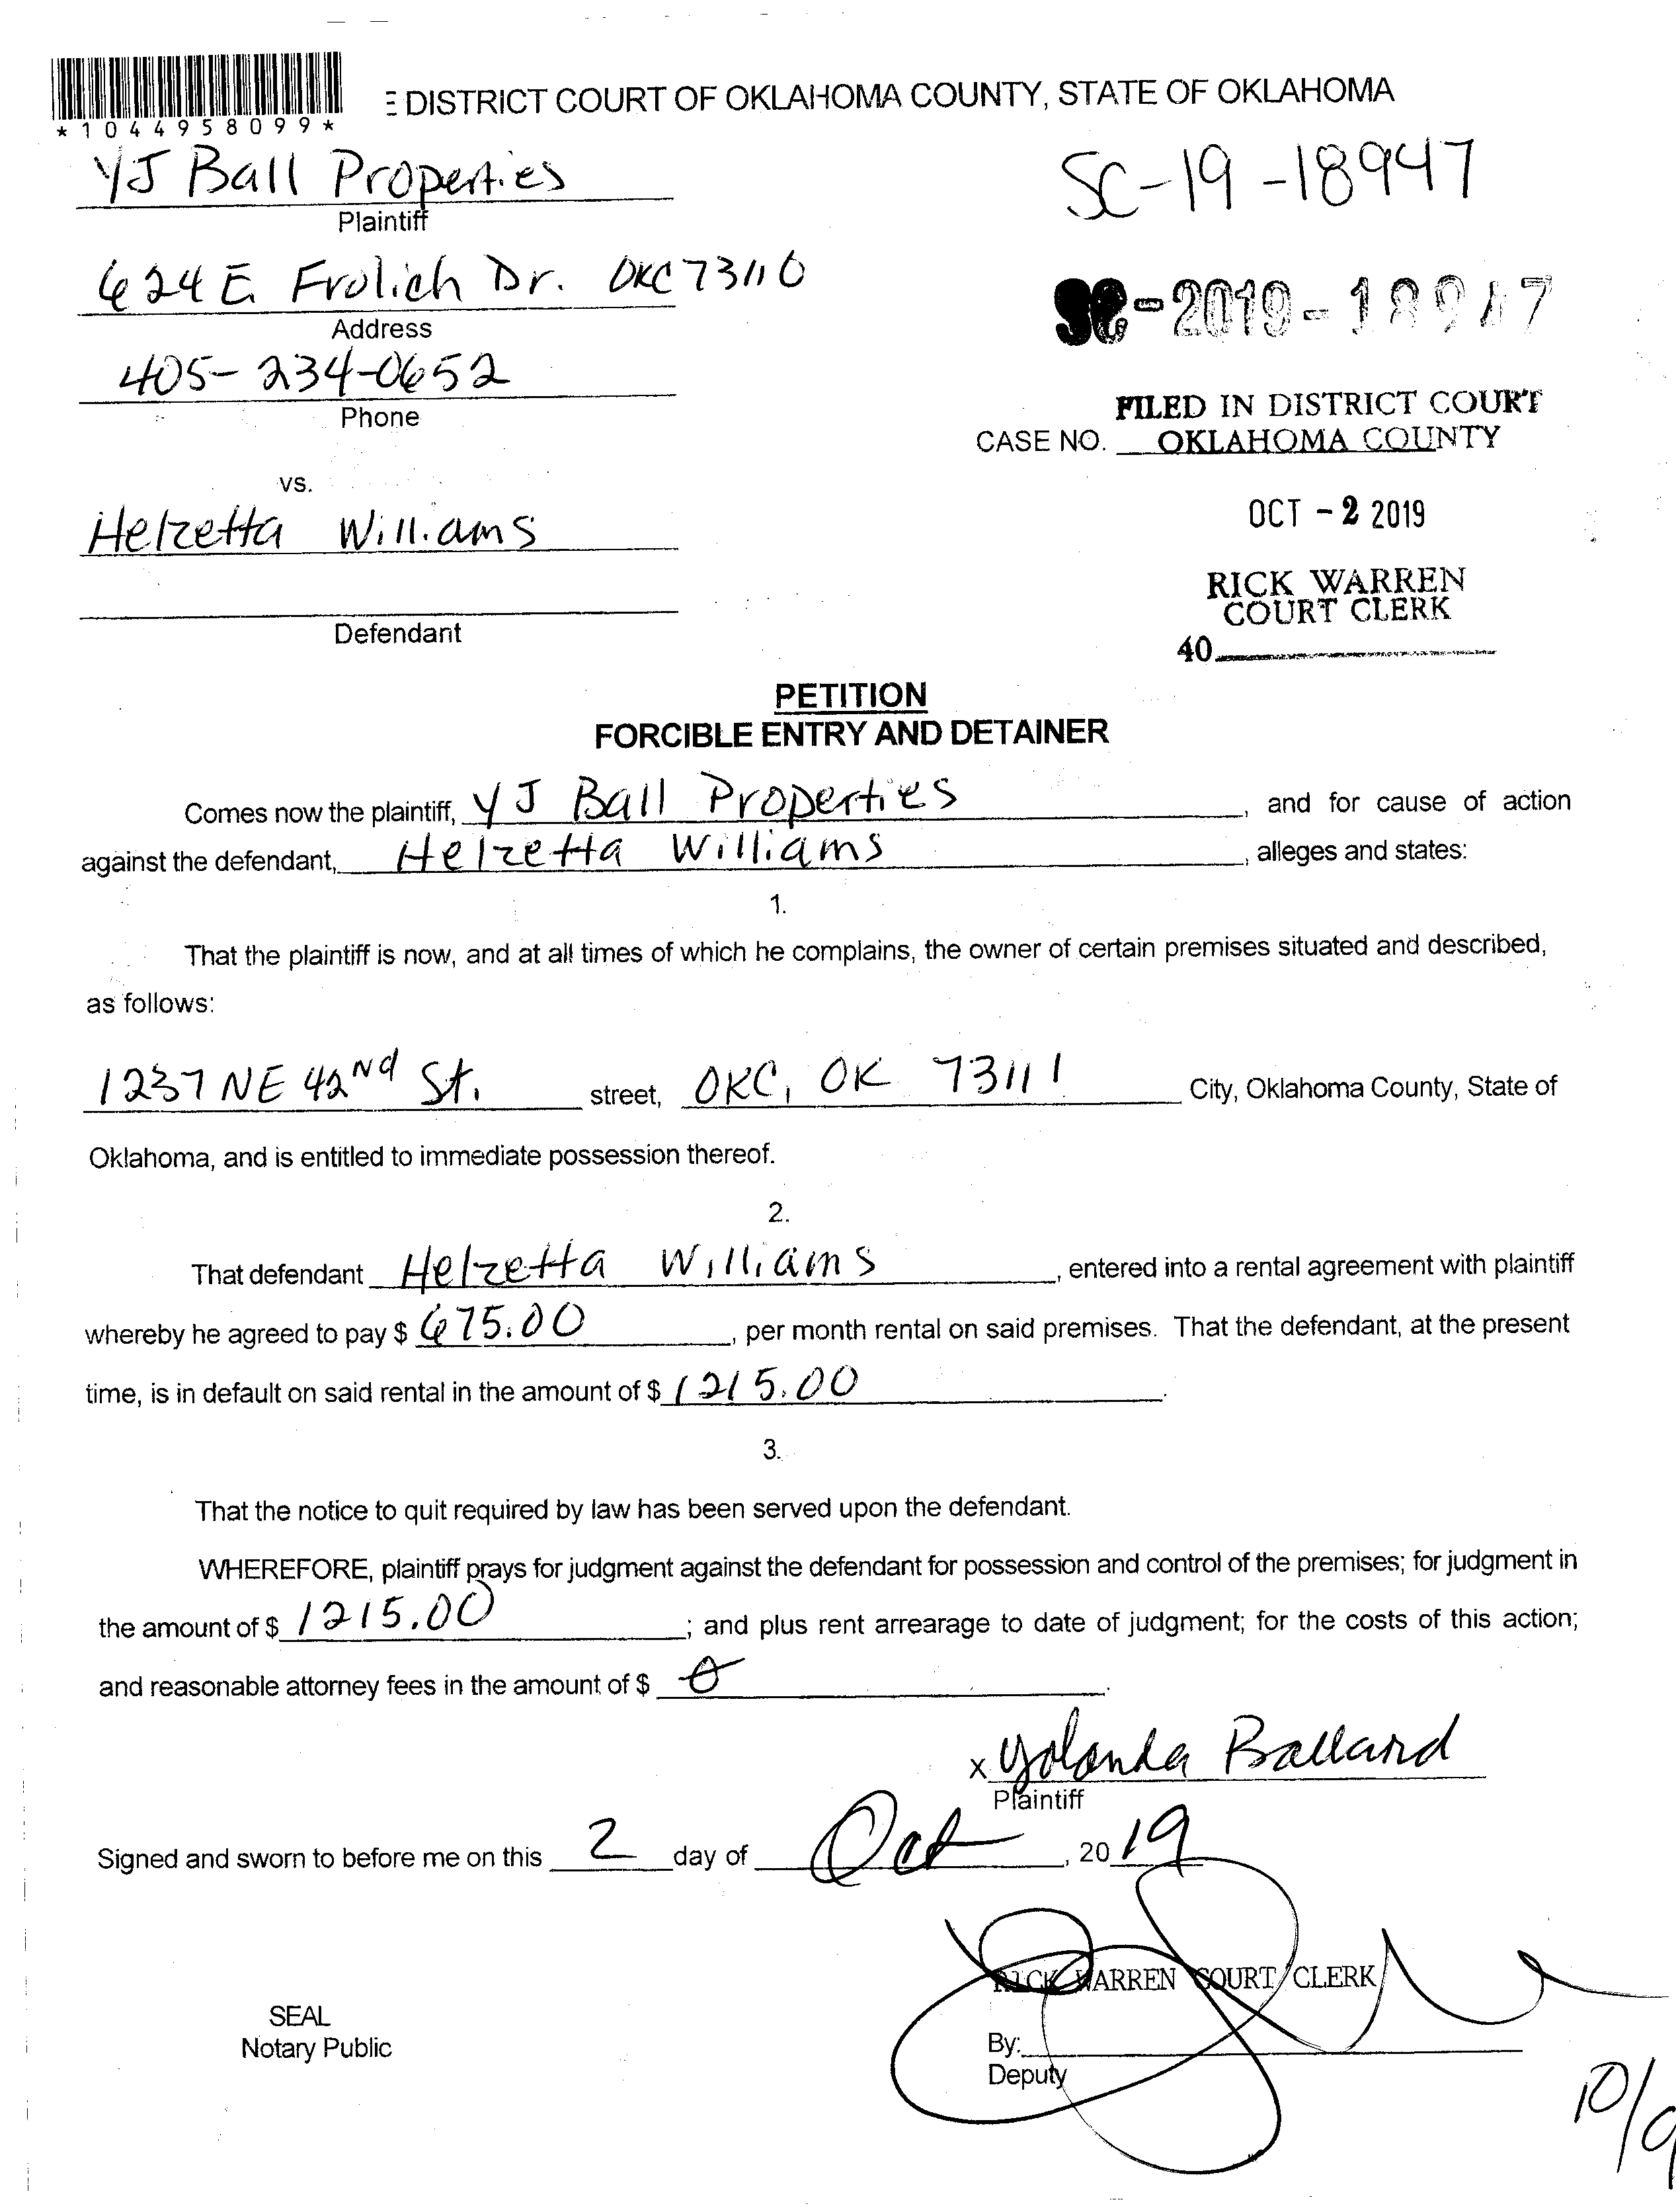 *1044958099*
E DISTRICT COURT OF OKLAHOMA COUNTY, STATE OF OKLAHOMA
YJ Ball Properties
SC-19-18947
Plaintiff
624 E. Frolich Dr. OKC 73110
SC-2019-18947
Address
405-234-0652
Phone
FILED IN DISTRICT COURT
CASE NO. OKLAHOMA COUNTY
vs.
OCT - 2 2019
Helzetta Williams
RICK WARREN
COURT CLERK
Defendant
40
PETITION
FORCIBLE ENTRY AND DETAINER
Comes now the plaintiff, YJ Ball Properties, and for cause of action
against the defendant, Helzetta Williams, alleges and states:
1.
That the plaintiff is now, and at all times of which he complains, the owner of certain premises situated and described,
as follows:
1237 NE 42Nd St. street, OKC, OK 73111 City, Oklahoma County, State of
Oklahoma, and is entitled to immediate possession thereof.
2.
That defendant Helzetta Williams, entered into a rental agreement with plaintiff
whereby he agreed to pay $ 675.00, per month rental on said premises. That the defendant, at the present
time, is in default on said rental in the amount of $ 1215.00.
3.
That the notice to quit required by law has been served upon the defendant.
WHEREFORE, plaintiff prays for judgment against the defendant for possession and control of the premises; for judgment in
the amount of $ 1215.00; and plus rent arrearage to date of judgment; for the costs of this action;
and reasonable attorney fees in the amount of $ 0.
x Yolanda Ballard
Plaintiff
Signed and sworn to before me on this 2 day of Oct, 2019
RICK WARREN COURT CLERK
SEAL
Notary Public
By:
Deputy
10/9